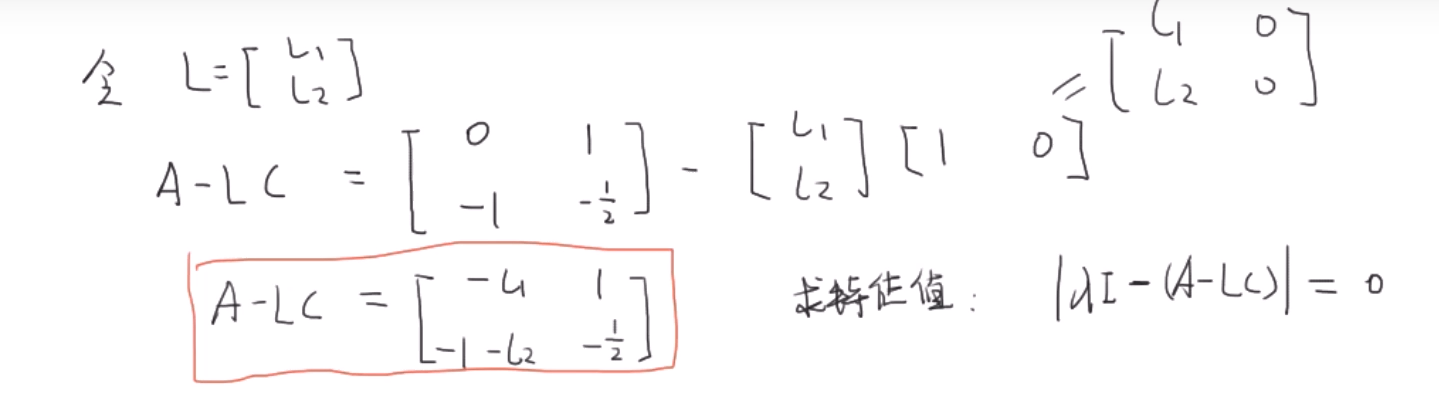 令 L = [ L₁ ; L₂ ]
= [ L₁ 0 ; L₂ 0 ]
A-LC = [ 0 1 ; -1 -1/2 ] - [ L₁ ; L₂ ] [ 1 0 ]
A-LC = [ -L₁ 1 ; -1-L₂ -1/2 ] 求特征值: |λI-(A-LC)| = 0